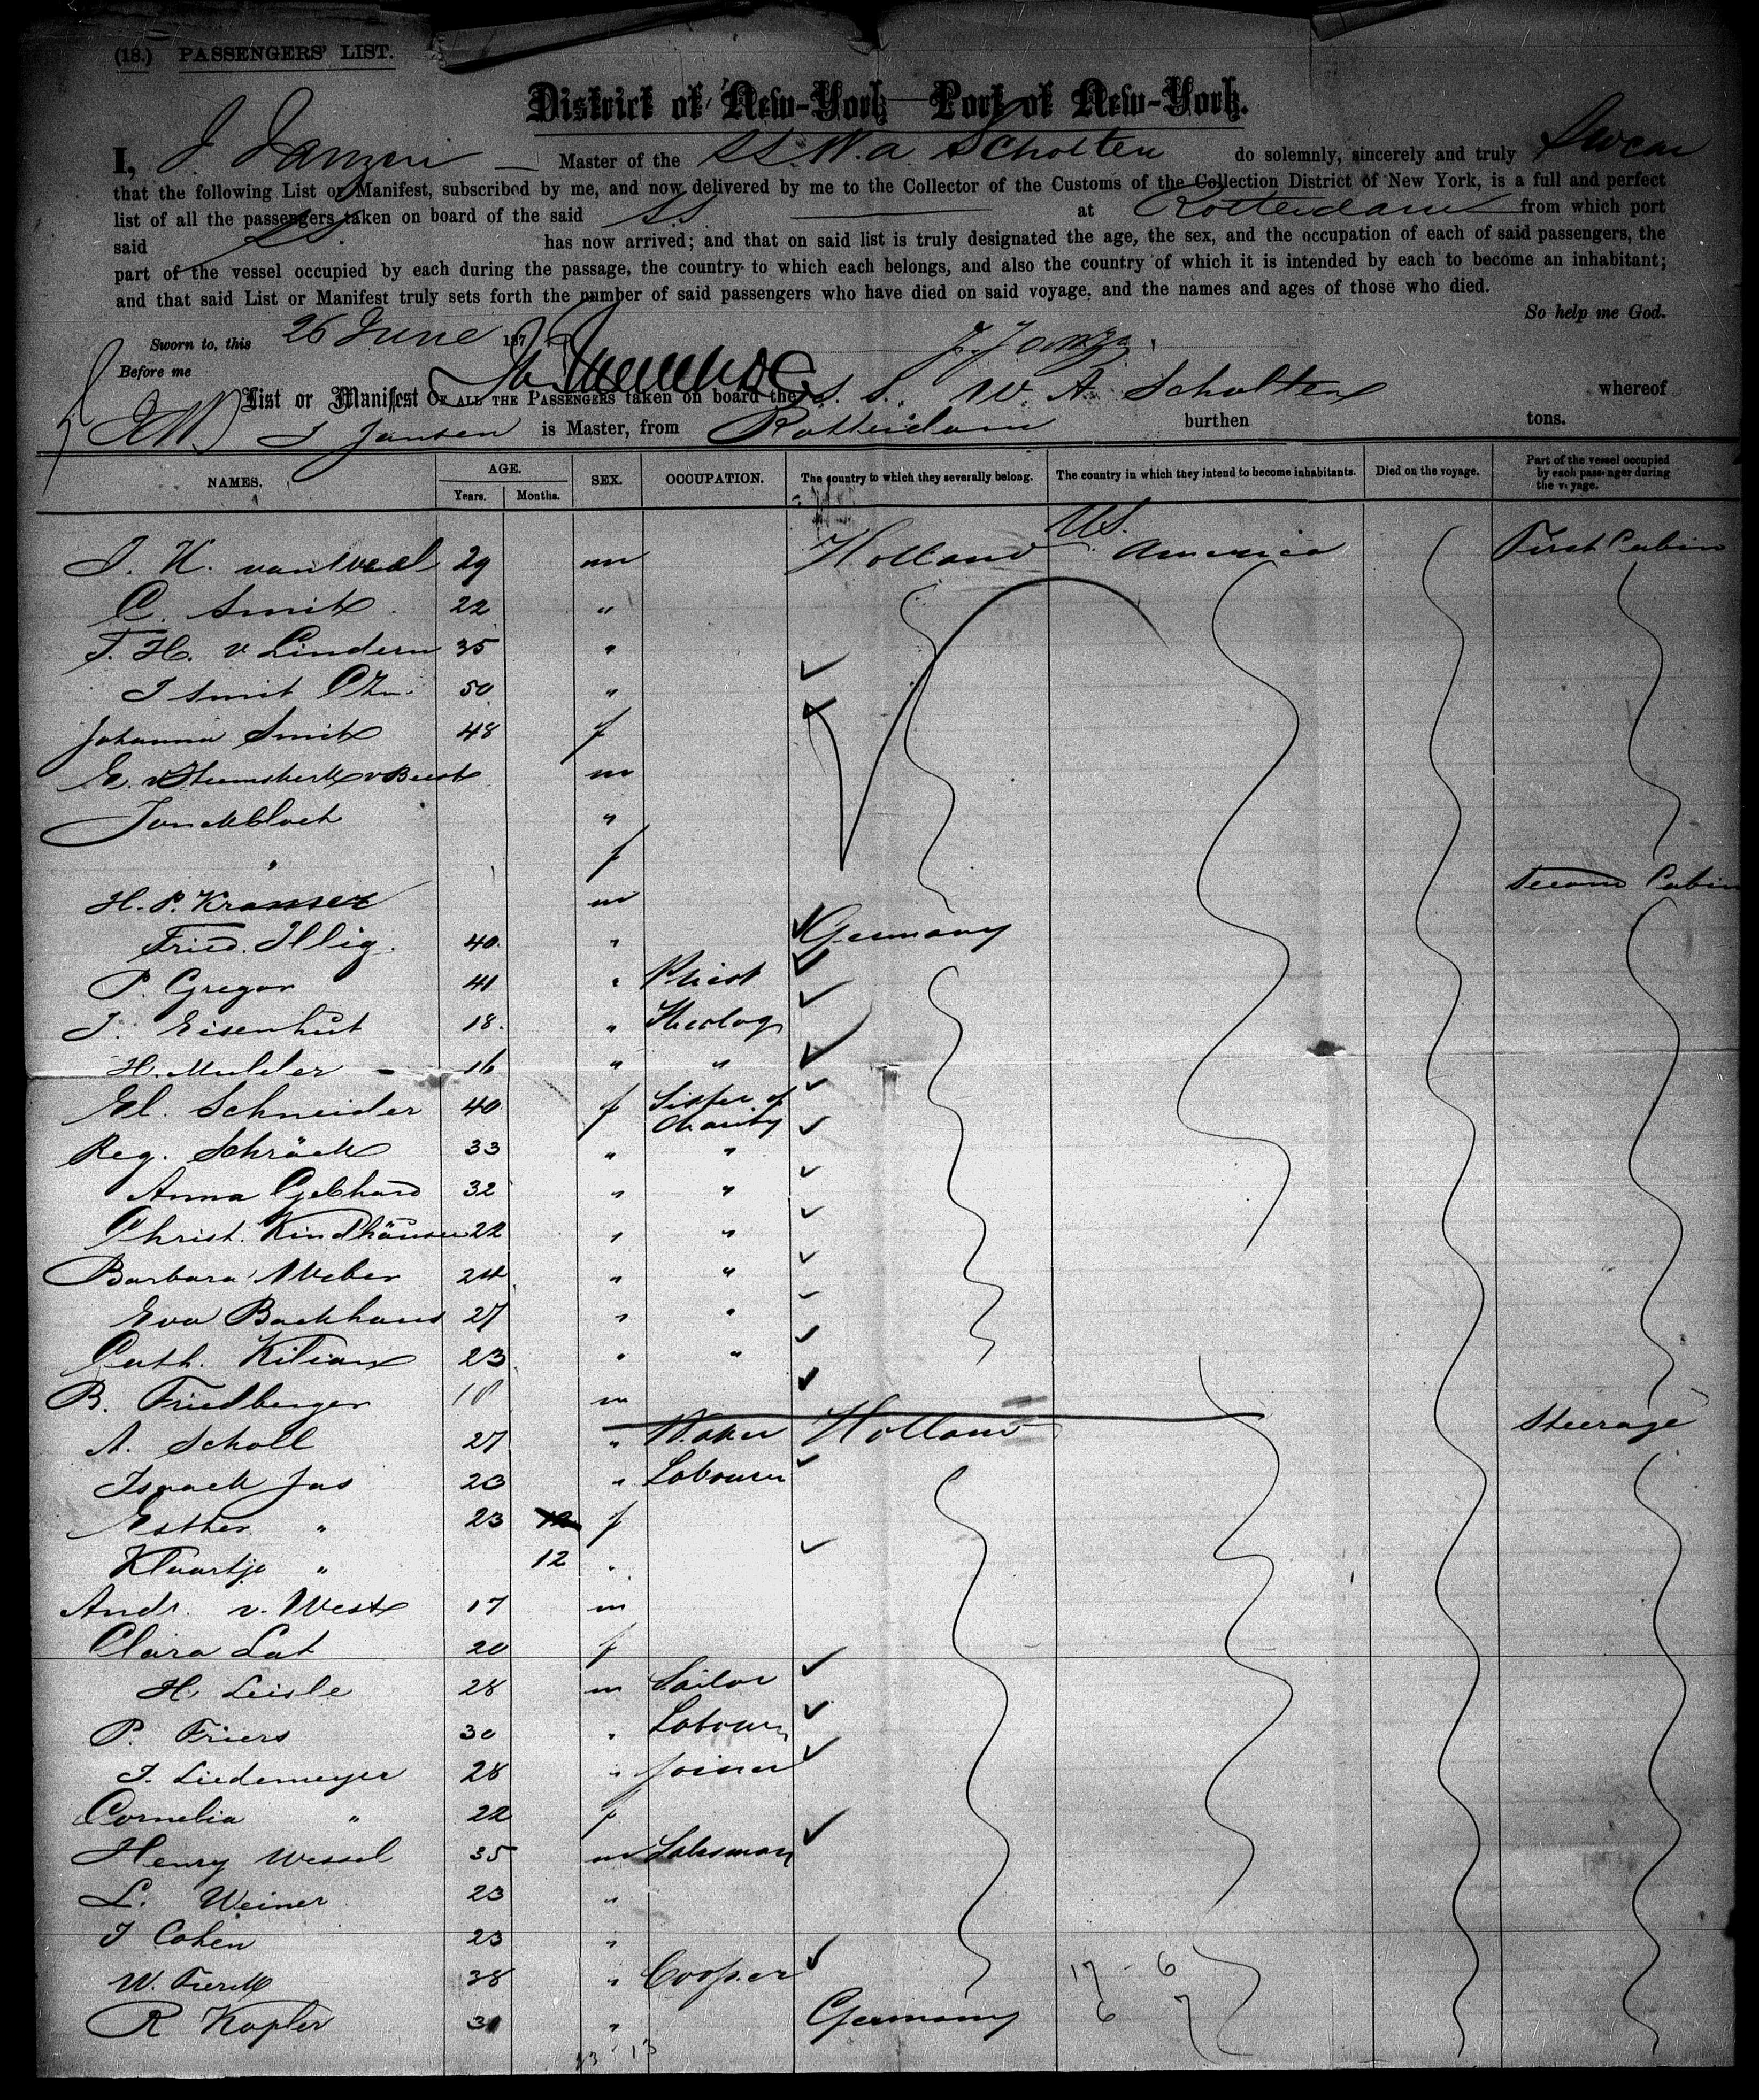 (18.) PASSENGERS' LIST.
District of New-York Port of New-York.
I, J. Janzen Master of the SS. W. A. Scholten do solemnly, sincerely and truly Swear
that the following List or Manifest, subscribed by me, and now delivered by me to the Collector of the Customs of the Collection District of New York, is a full and perfect
list of all the passengers taken on board of the said SS at Rotterdam from which port
said SS. has now arrived; and that on said list is truly designated the age, the sex, and the occupation of each of said passengers, the
part of the vessel occupied by each during the passage, the country to which each belongs, and also the country of which it is intended by each to become an inhabitant;
and that said List or Manifest truly sets forth the number of said passengers who have died on said voyage, and the names and ages of those who died.
So help me God.
Sworn to, this 26 June 187
Before me
List or Manifest OF ALL THE PASSENGERS taken on board the S. S. W. A. Scholten whereof
J Jansen is Master, from Rotterdam burthen tons.
NAMES. AGE. Years. Months. SEX. OCCUPATION. The country to which they severally belong. The country in which they intend to become inhabitants. Died on the voyage. Part of the vessel occupied by each passenger during the voyage.
J. K. 29 m Holland U.S. America First Cabin
C. Smit 22 "
T. H. v. Lindern 35 "
J Smit 50 "
Johanna Smit 48 f
E. v m
Jonckbloet "
" f
H. P. Kramer m Second Cabin
Fried. Illig. 40. " Germany
P. Gregor 41 " Priest
J. Eisenhut 18. " Theolog
H. Mulder 16 " "
El. Schneider 40 f Sister of Charity
Reg. Schröck 33 " "
Anna Gebhard 32 " "
Christ. Kindhäuser 22 " "
Barbara Weber 24 " "
Eva Backhaus 27 " "
Cath. Kilian 23 " "
B. Friedberger 18 m
A. Scholl 27 " Holland Steerage
Isaack Jas 23 " Labourer
Esther " 23 12 f
Klaartje " 12 "
Andr. v. West 17 m
Clara Lat 20 f
H. Leisle 28 m Sailor
P. Friers 30 " Labourer
J. Liedemeyer 28 " Joiner
Cornelia " 22 f
Henry Wessel 35 m Salesman
L. Weiner 23 "
J Cohen 23 "
W. 38 " Cooper 17 - 6
R Kopler 31 " Germany 6 7
13 13